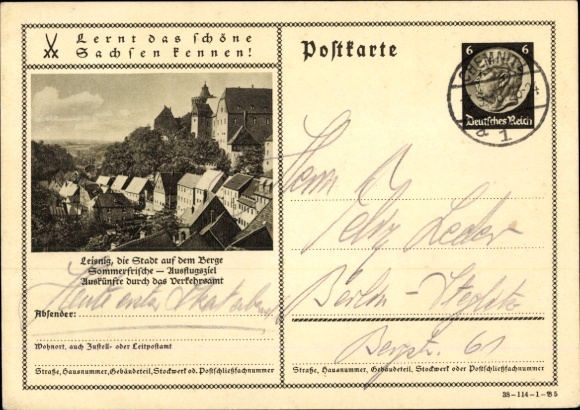 Lernt das schöne
Sachsen kennen!
Leisnig, die Stadt auf dem Berge
Sommerfrische — Ausflugsziel
Auskünfte durch das Verkehrsamt
Heute erster Skatabend
Absender:
Wohnort, auch Zustell- oder Leitpostamt
Straße, Hausnummer, Gebäudeteil, Stockwerk od. Postschließfachnummer
Postkarte
6 6
Deutsches Reich
CHEMNITZ
d 1
Herrn
Felix Leder
Berlin-Steglitz
Bergstr. 61
Straße, Hausnummer, Gebäudeteil, Stockwerk oder Postschließfachnummer
38-114-1-B5